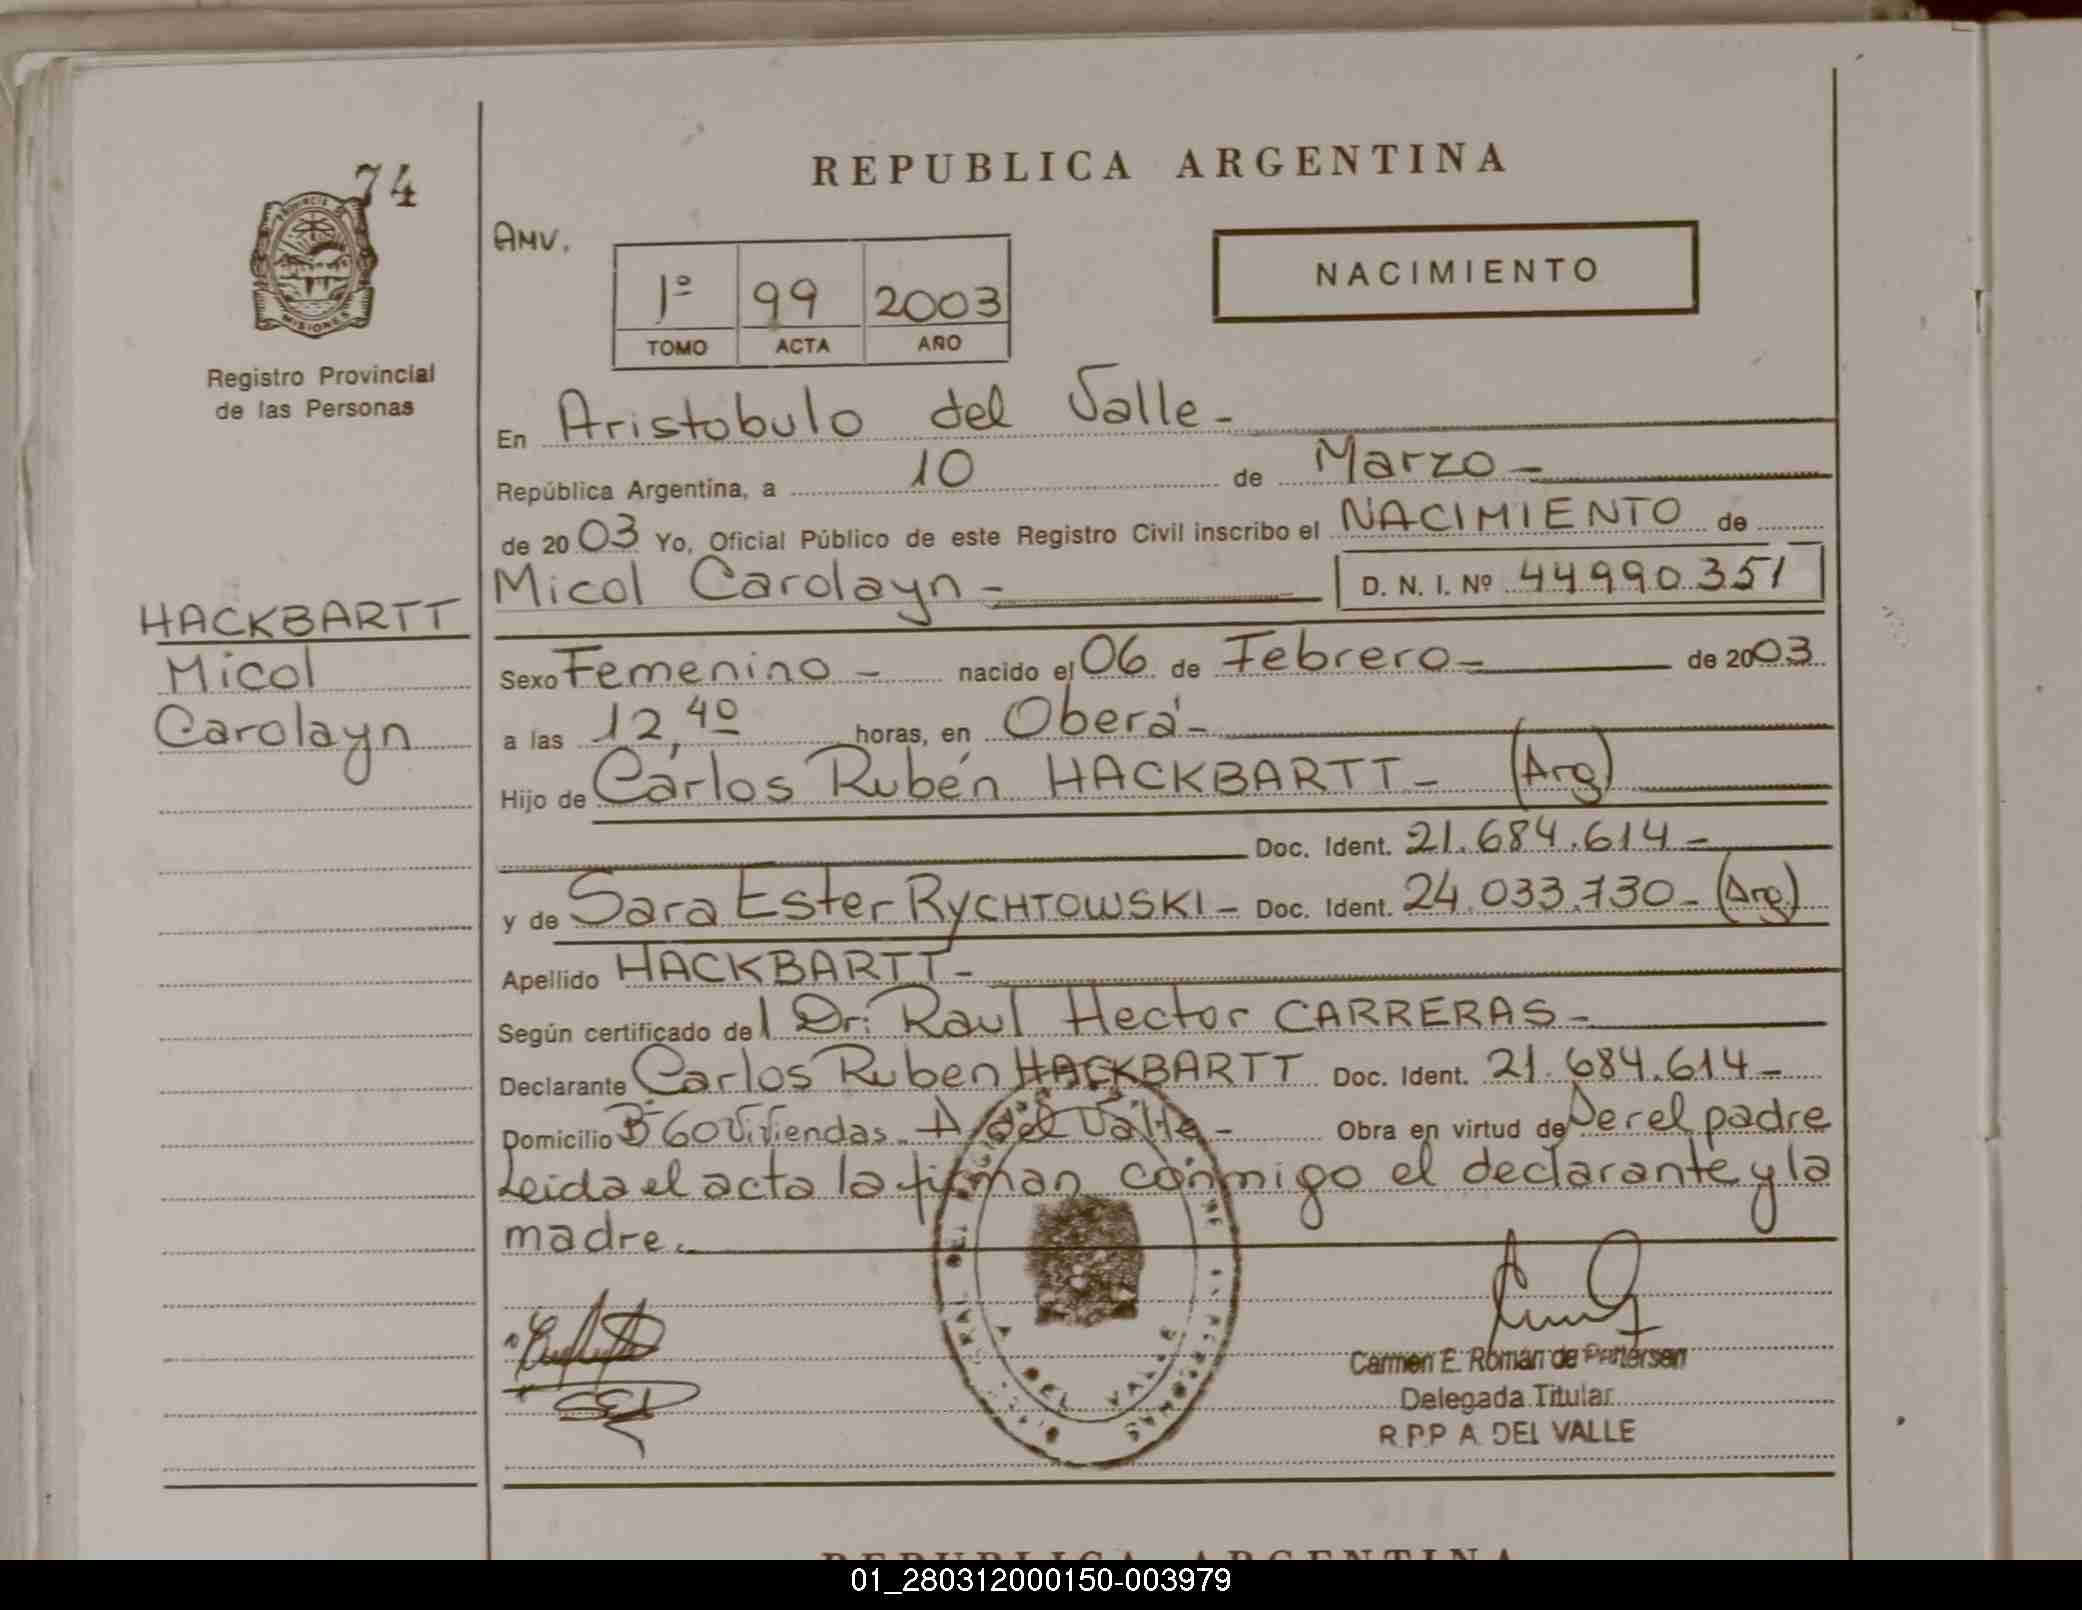 74
PROVINCIA DE
MISIONES
Registro Provincial
de las Personas
HACKBARTT
Micol
Carolayn
REPUBLICA ARGENTINA
AMV.
1º 99 2003
TOMO ACTA AÑO
NACIMIENTO
En Aristobulo del Valle-
República Argentina, a 10 de Marzo-
de 2003 Yo, Oficial Público de este Registro Civil inscribo el NACIMIENTO de
Micol Carolayn- D. N. I. Nº 44990.351
Sexo Femenino - nacido el 06 de Febrero- de 2003
a las 12,40 horas, en Oberá-
Hijo de Carlos Rubén HACKBARTT- (Arg)
Doc. Ident. 21.684.614-
y de Sara Ester RYCHTOWSKI- Doc. Ident. 24.033.730- (Arg)
Apellido HACKBARTT-
Según certificado del Dr: Raul Hector CARRERAS-
Declarante Carlos Ruben HACKBARTT Doc. Ident. 21.684.614-
Domicilio Bº 60 Viviendas. A/del Valle- Obra en virtud de Ser el padre
Leida el acta la firman conmigo el declarante y la
madre.
Carmen E. Román de Pettersen
Delegada Titular
R.P.P A. DEL VALLE
REPUBLICA ARGENTINA
01_280312000150-003979